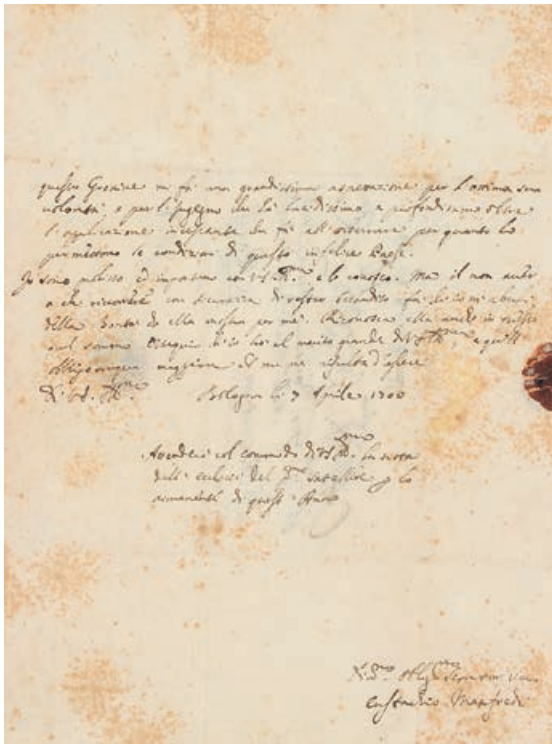 questo Giovine mi fà una grandissima aspettazione per l'ottima sua
volontà e per l'ingegno che hà lucidissimo e profondissimo oltre
l'applicazione incessante che fà all'osservare per quanto lo
permettono le condizioni di questo infelice Paese.
Io sono molesto ed importuno con V.S. Ill.ma e lo conosco. Ma il non aver
a chi ricorrere con sicurezza di restar
della bontà che ella mostra per me. Riconosca ella anche in questo
quel sommo ossequio ch'io hò al merito grande di V.S. Ill.ma e quell'
obligo sempre maggiore che me ne risulta d'essere
Di V.S. Ill.ma Bologna li 7 Aprile 1700
Attenderei col commodo di V.S. Ill.ma la nota
delli eclissi del p.mo satellite p lo
rimanente di quest'Anno
Eustachio Manfredi